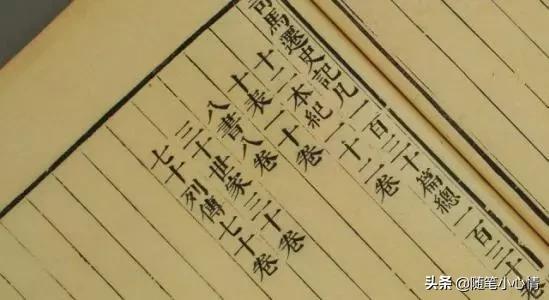 司馬遷史記凡一百三十篇總一百三十卷
十二本紀一十二卷
十表一十卷
八書八卷
三十世家三十卷
七十列傳七十卷
头条 @随笔小心情